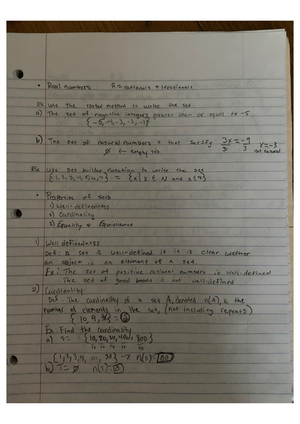 • Real numbers R = rationals + irrationals
Ex. Use the roster method to write the set.
a) The set of negative integers greater than or equal to -5
{-5, -4, -3, -2, -1}
b) The set of natural numbers x that satisfy 3x = -9
3 3 x = -3
∅ ← empty set not natural
Ex. Use set builder notation to write the set
{1, 2, 3, 4, 5, 6, 7} = {x | x ∈ N and x
• Properties of sets
1) Well-definedness
2) Cardinality
3) Equality + Equivalence
1) Well definedness
Def: A set is well-defined if it is clear wether
an object is an element of a set.
Ex: The set of positive rational numbers is well-defined
The set of good books is not well-defined
2) Cardinality
Def. The cardinality of a set A, denoted n(A), is the
number of elements in the set. (not including repeats)
Ex: Find the cardinality
a) S = {10, 20, 30, 40, ..., 800}
10 10 10 10
{1, 2, 3, 4, ..., 80} → n(S) = 80
b) T = ∅ n(T) = 0